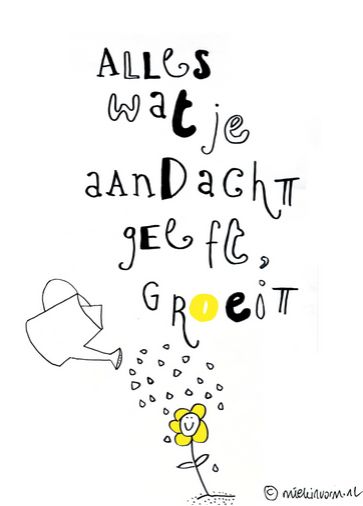 ALLes
wat je
aanDachT
gEeft,
GRoeiT
© miekinvorm.nl